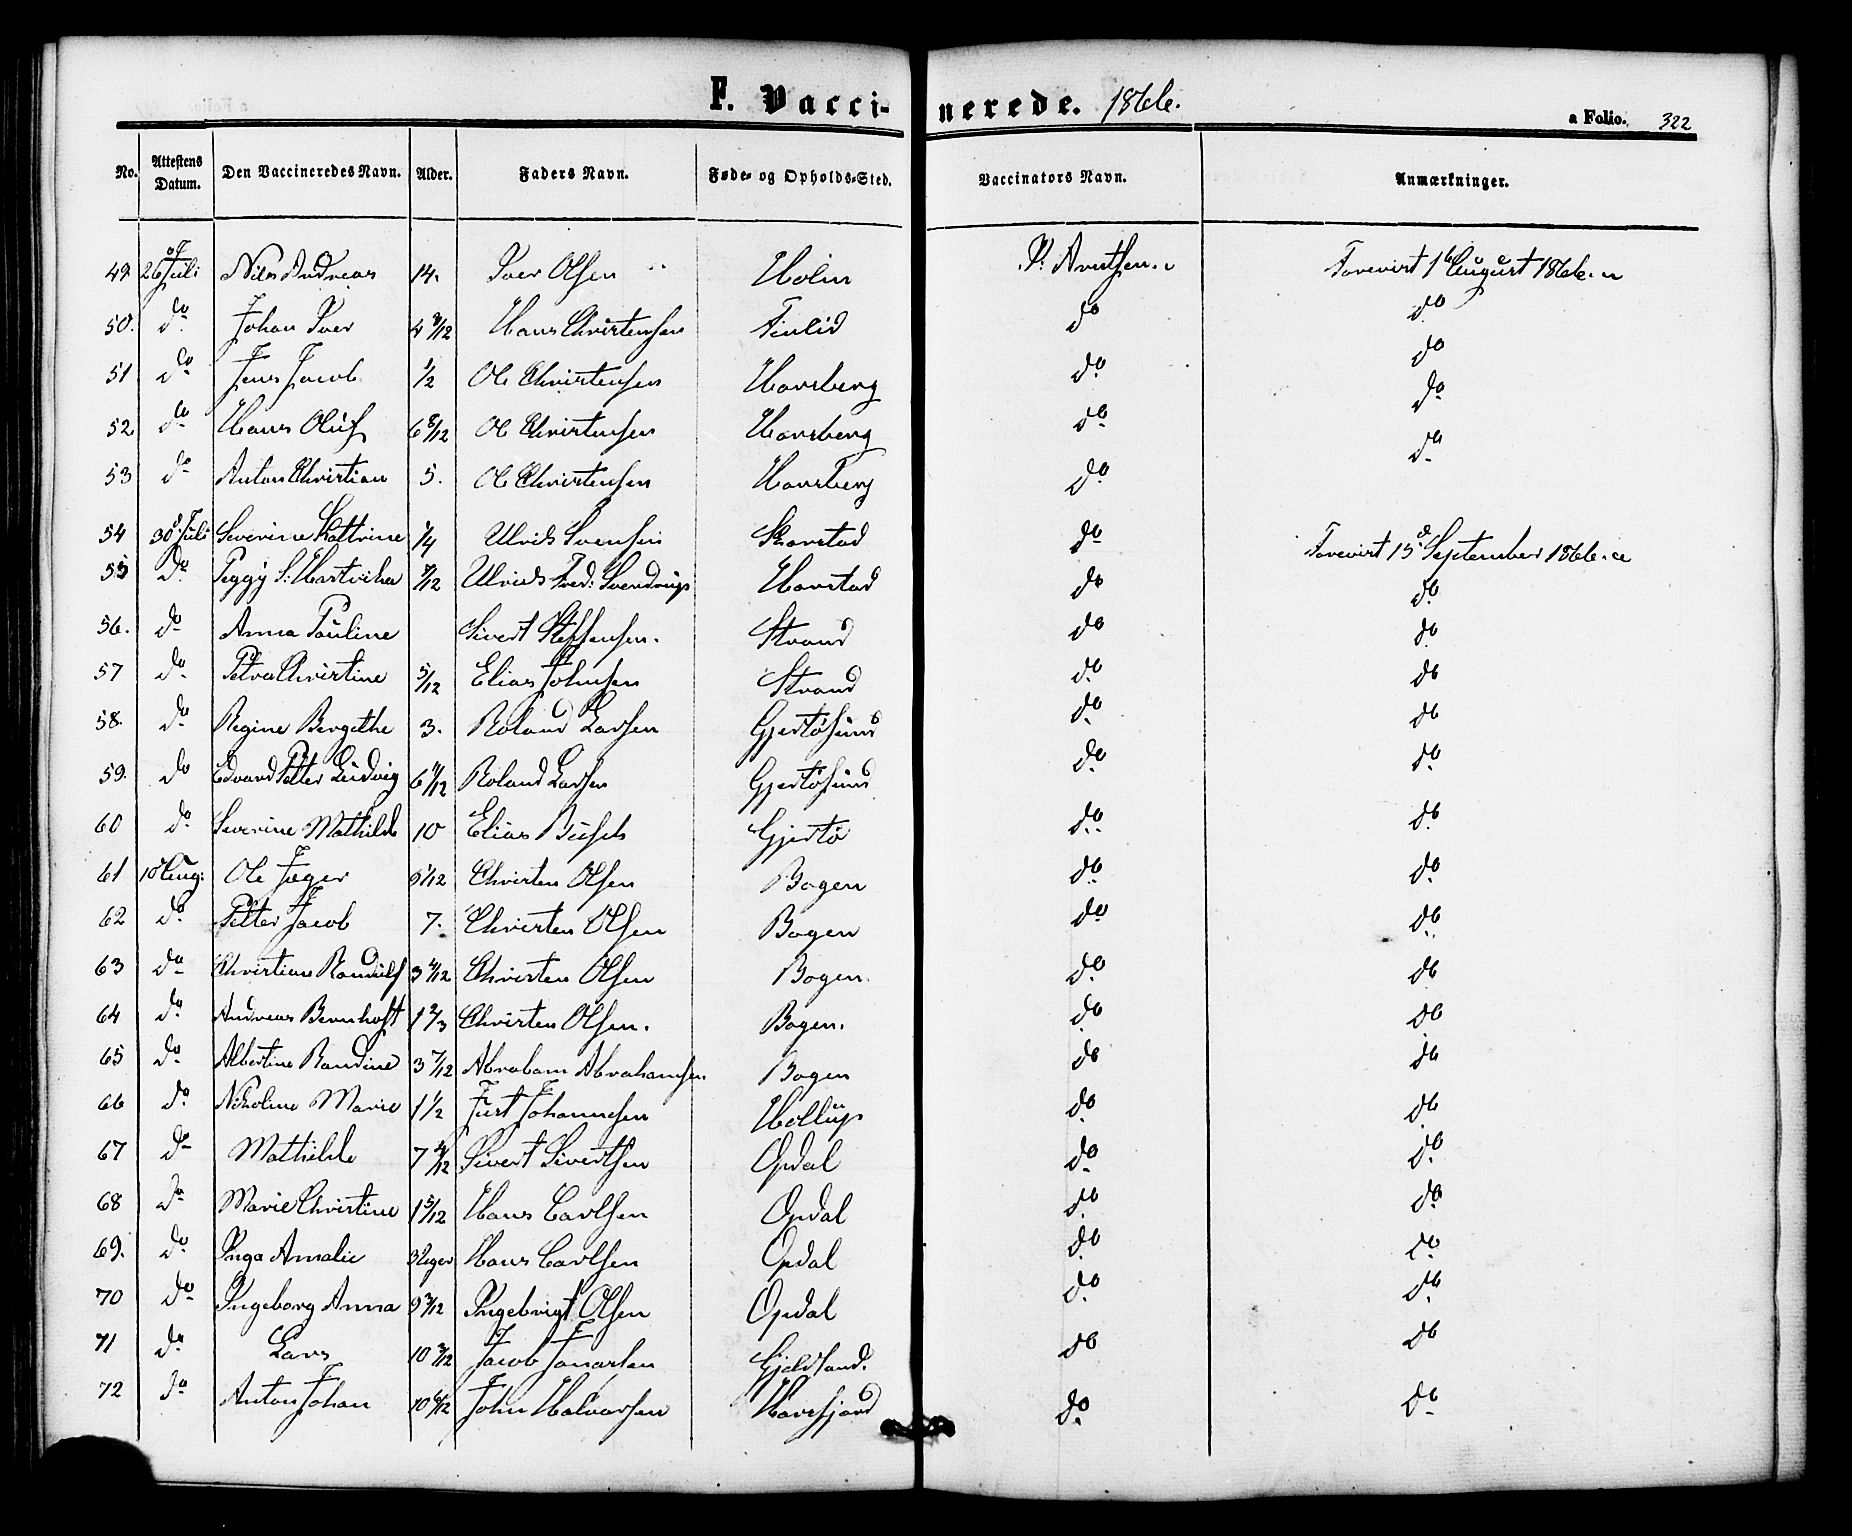 F. Vaccinerede. 1866.
a Folio. 322
No. Attestens Datum. Den Vaccineredes Navn. Alder. Faders Navn. Føde- og Opholds-Sted. Vaccinators Navn. Anmærkninger.
49. 26 Juli Nils Andreas 14. Iver Olsen Holm P. Arntsen. Foreviist 1 August 1866.
50. do Johan Iver 4 8/12 Hans Christensen Finlid do do
51 do Jens Jacob 1/2 Ole Christensen Havsberg do do
52. do Hans Oluf 6 8/12 Ole Christensen Havsberg do do
53 do Anton Christian 5. Ole Christensen Havsberg do do
54 30 Juli Severine Kattrine 1/4 Ulrik Svensen Skarstad do Foreviist 15 September 1866.
55 do Peggy S. Hartvika 7/12 Ulrich Fred: Svendrup Harstad do do
56. do Anna Pauline Sivert Steffensen. Strand do do
57 do Petra Christine 5/12 Elias Johnsen Strand do do
58. do Regine Bergithe 3. Roland Larsen Gjertøsund do do
59. do Edvard Petter Ludvig 6 11/12 Roland Larsen Gjertøsund do do
60 do Severine Mathilde 10 Elias Busch Gjertø do do
61 10 Aug: Ole Jæger 9 1/12 Christen Olsen Bogen do do
62 do Petter Jacob 7. Christen Olsen Bogen do do
63 do Christian Randulf 3 4/12 Christen Olsen Bogen. do do
64 do Andreas Bernhoft 1 2/3 Christen Olsen. Bogen. do do
65 do Albertine Randine 3 7/12 Abraham Abrahamsen Bogen do do
66 do Nikoline Marie 1 1/2 Just Johannesen Hollup do do
67 do Mathilde 7 4/12 Sivert Sivertsen Opdal do do
68 do Marie Christine 1 5/12 Hans Carlsen Opdal do do
69. do Inga Amalie 3 Uger Hans Carlsen Opdal do do
70 do Ingeborg Anna 9 3/12 Ingebrigt Olsen Opdal do do
71 do Lars 10 3/12 Jacob Jonassen Gjelsand. do do
72 do Anton Johan 10 6/12 John Halvorsen Havsfjord do do